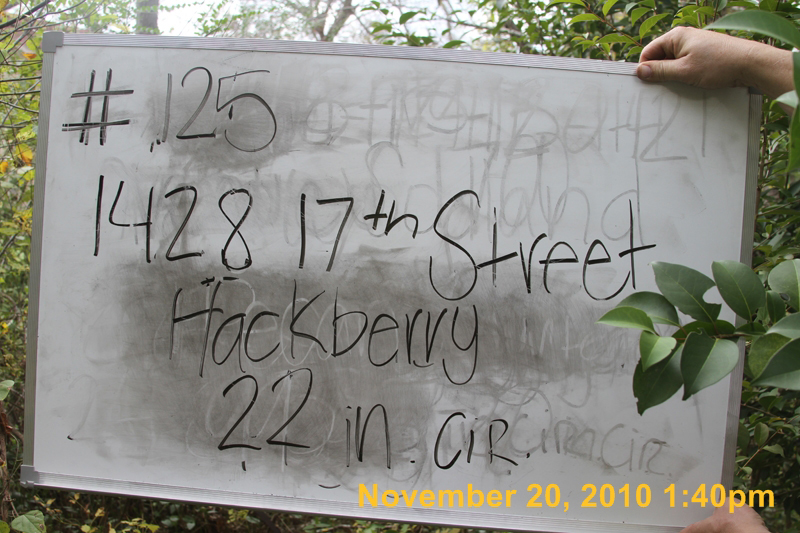 # 125
1428 17th Street
Hackberry
22 in. cir.
November 20, 2010 1:40pm